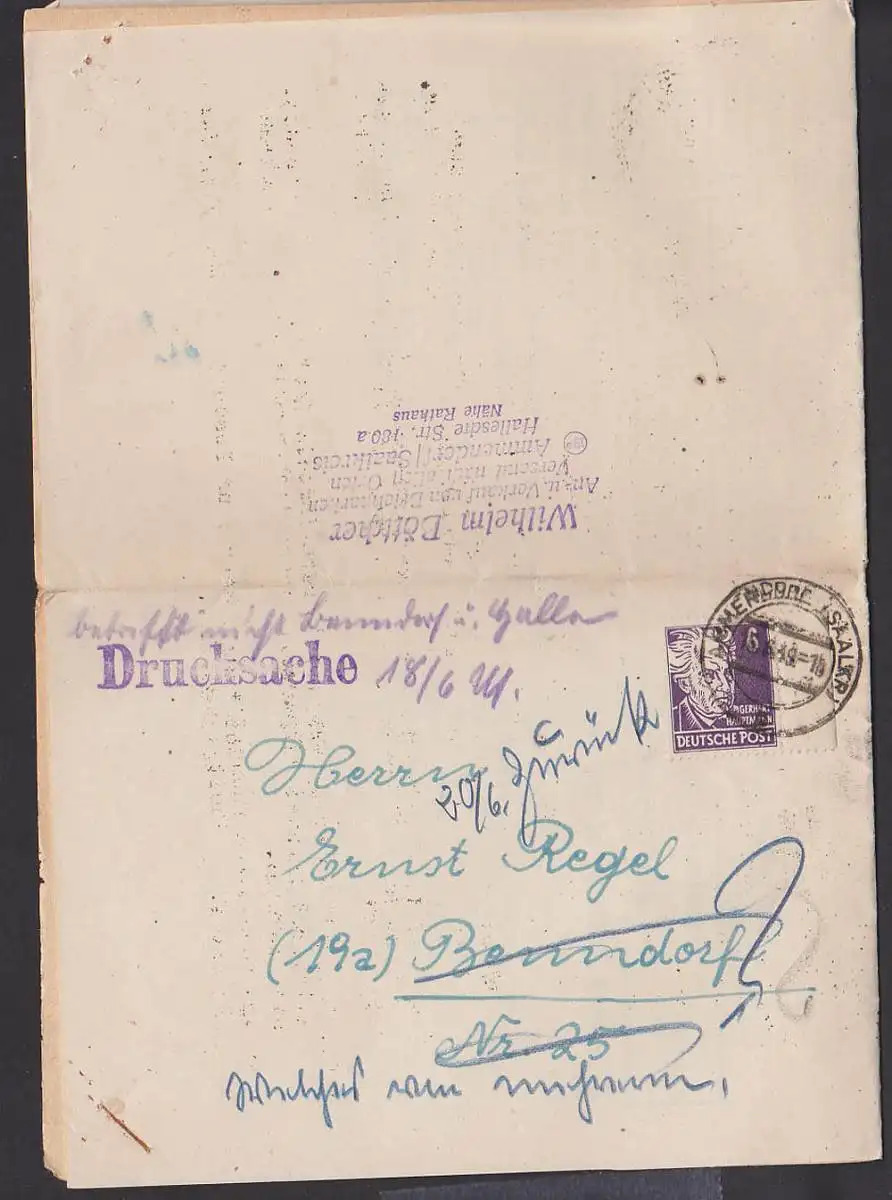 Nähe Rathaus
Hallesche Str. 180 a
Ammendorf/Saalkreis
Versand nach allen Orten
An- u. Verkauf von Briefmarken
Wilhelm Böttcher
betrifft nicht Benndorf ü. Halle
Drucksache 18/6
AMMENDORF (SAALKR)
6
GERHART
HAUPTMANN
DEUTSCHE POST
20/6. Zurück
Herrn
Ernst Regel
(19a) Benndorf
Nr. 25
Welches von mehreren,